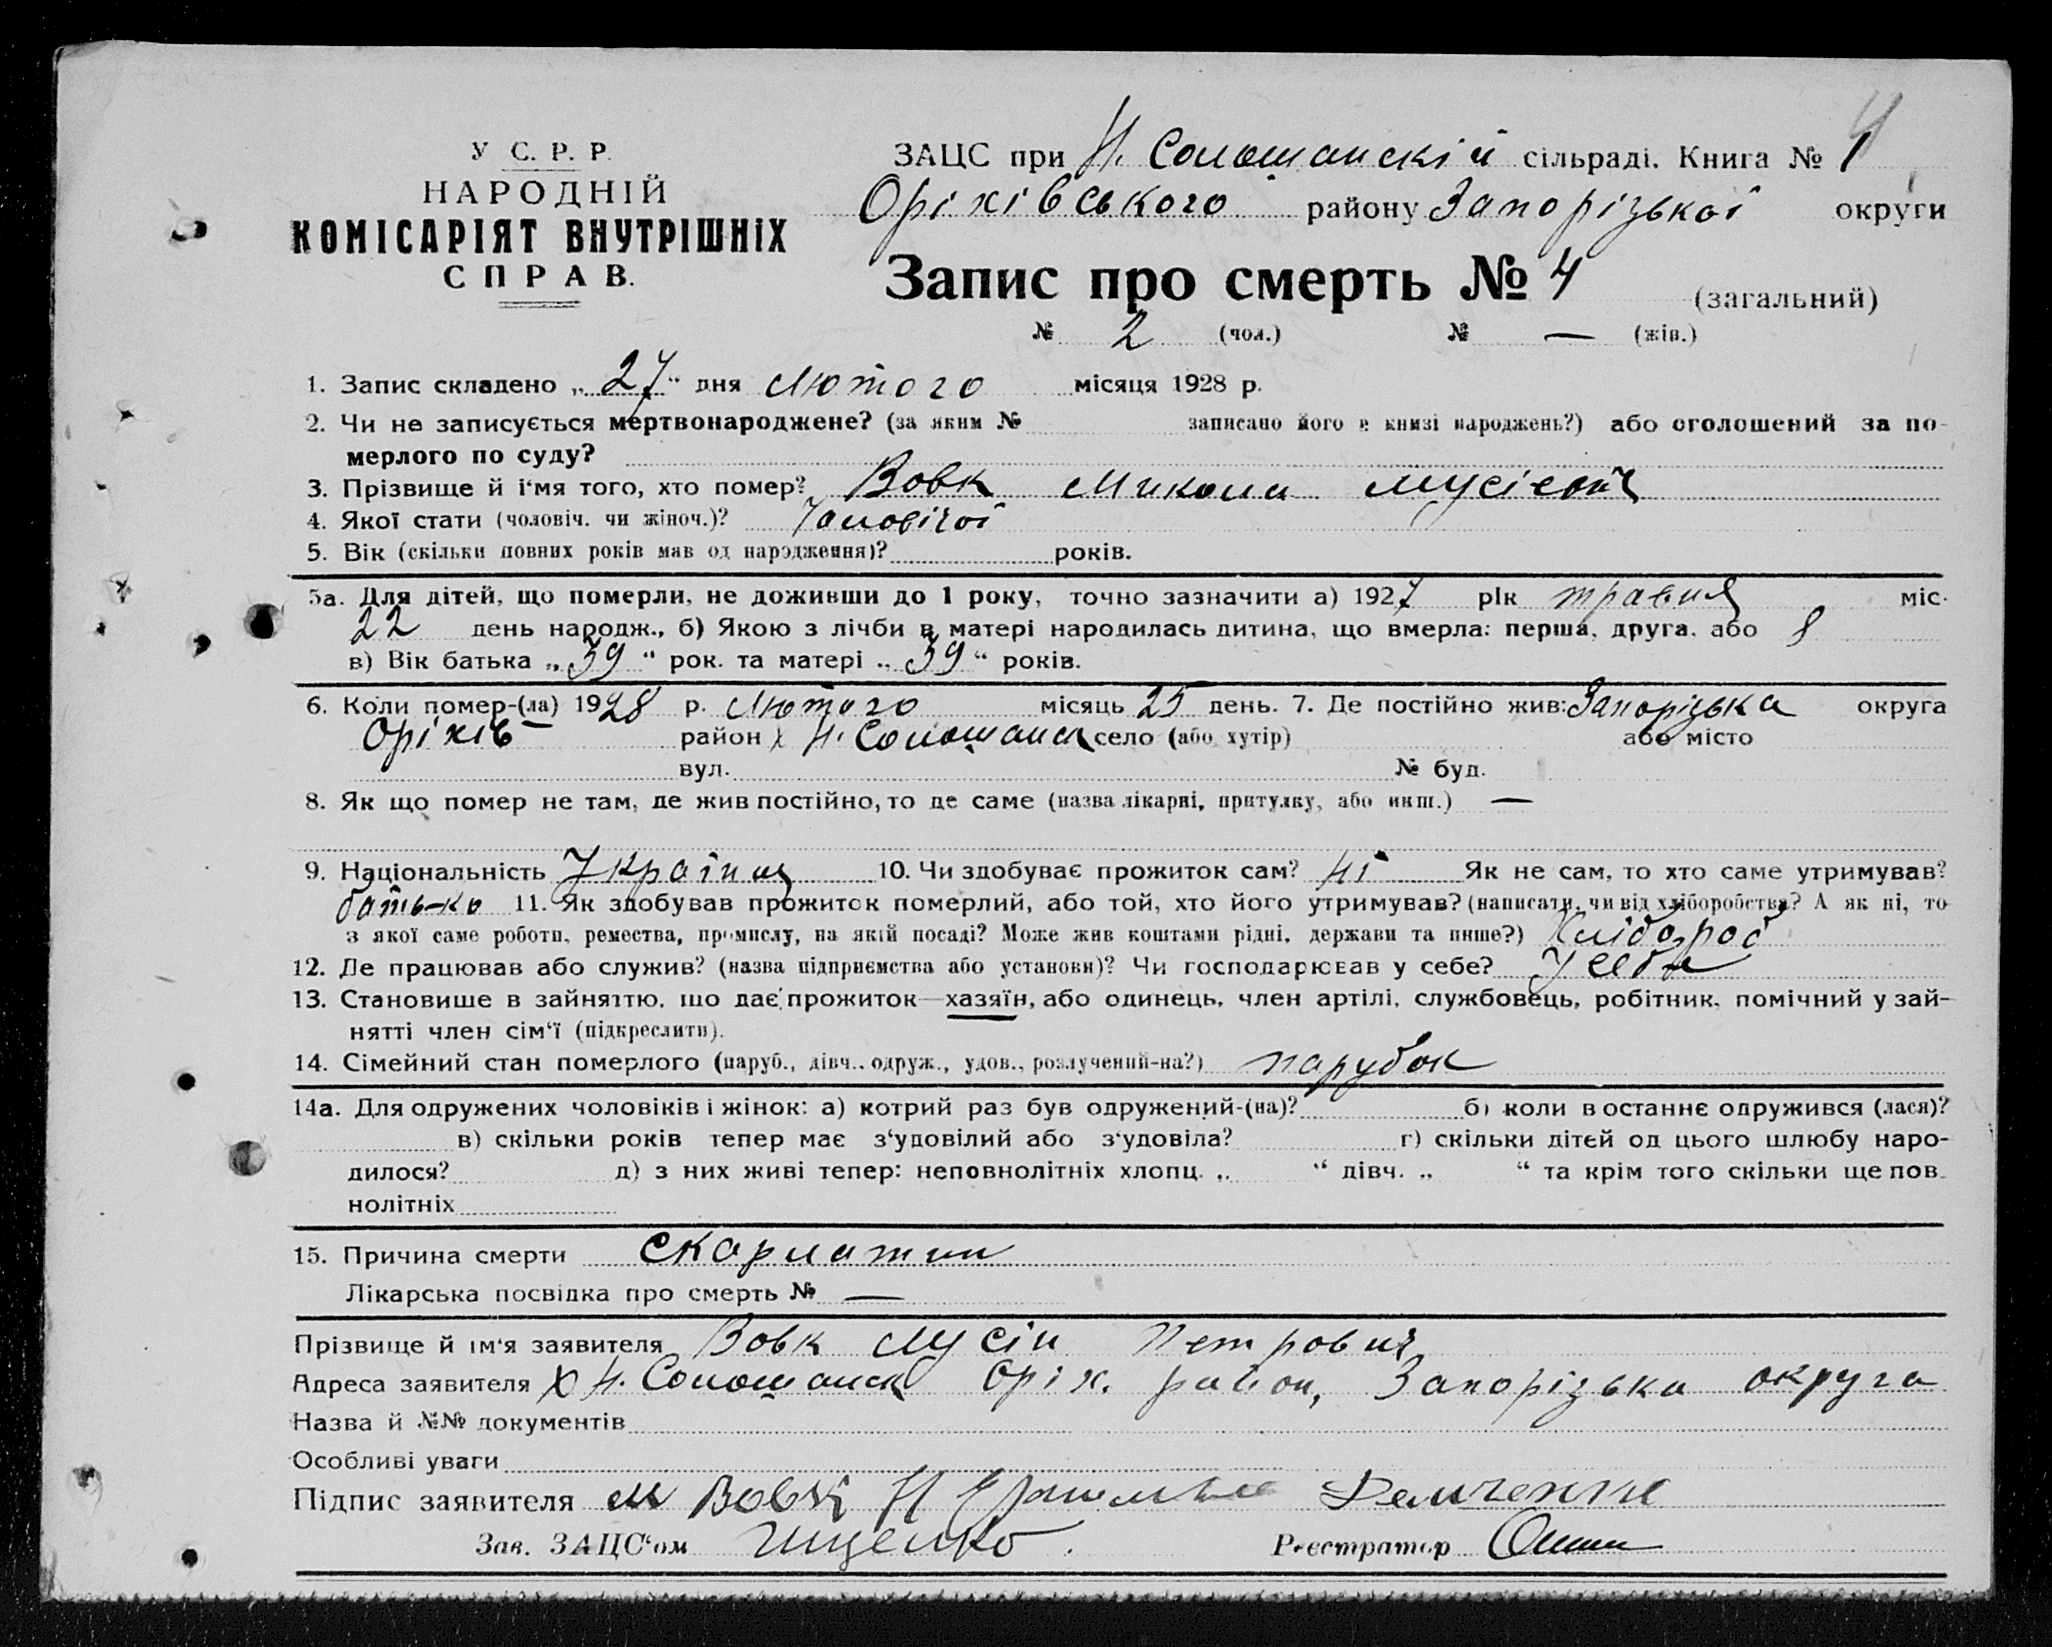 4
У С. Р. Р.
НАРОДНІЙ
КОМІСАРІЯТ ВНУТРІШНІХ
СПРАВ.
ЗАЦС при Н. Солошанскій сільраді. Книга № 1
Оріхівського району Запорізької округи
Запис про смерть № 4 (загальний)
№ 2 (чол.) № — (жів.)
1. Запис складено „ 27 “ дня Лютого місяця 1928 р.
2. Чи не записується мертвонароджене? (за яким № записано його в книзі народжень?) або оголошений за по-
мерлого по суду?
3. Прізвище й і‘мя того, хто помер? Вовк Микола Мусієвич
4. Якої стати (чоловіч. чи жіноч.)? Чоловічої
5. Вік (скільки повних років мав од народження)? років.
5а. Для дітей, що померли, не доживши до 1 року, точно зазначити а) 1927 рік травня міс.
22 день народж., б) Якою з лічби в матері народилась дитина, що вмерла: перша, друга. або 8
в) Вік батька „ 39 “ рок. та матері „ 39 “ років.
6. Коли помер-(ла) 1928 р. Лютого місяць 25 день. 7. Де постійно жив: Запорізька округа
Оріхів район х Н. Солошанск село (або хутір) або місто
вул. № буд.
8. Як що помер не там, де жив постійно, то де саме (назва лікарні, притулку, або инш.) —
9. Національність Українец 10. Чи здобуває прожиток сам? Ні Як не сам, то хто саме утримував?
батько 11. Як здобував прожиток померлий, або той, хто його утримував? (написати, чи від хліборобства? А як ні, то
з якої саме роботи, ремества, промислу, на якій посаді? Може жив коштами рідні, держави та инше?) Хлібороб
12. Де працював або служив? (назва підприємства або установи)? Чи господарював у себе? У себе
13. Становище в зайняттю, що дає прожиток—хазяїн, або одинець, член артілі, службовець, робітник, помічний у зай-
нятті член сім‘ї (підкреслити).
14. Сімейний стан померлого (паруб., дівч., одруж., удов., розлучений-на?) парубок
14а. Для одружених чоловіків і жінок: а) котрий раз був одружений-(на)? б) коли в останнє одружився (лася)?
в) скільки років тепер має з‘удовілий або з‘удовіла? г) скільки дітей од цього шлюбу наро-
дилося? д) з них живі тепер: неповнолітніх хлопц. „ “ дівч. „ “ та крім того скільки ще пов-
нолітніх
15. Причина смерти скарлатин
Лікарська посвідка про смерть № —
Прізвище й ім‘я заявителя Вовк Мусій Петрович
Адреса заявителя х Н. Солошанск Оріх. район, Запорізька округа
Назва й №№ документів
Особливі уваги
Підпис заявителя М Вовк Н Демченко
Зав. ЗАЦС‘ом Іщенко. Реєстратор